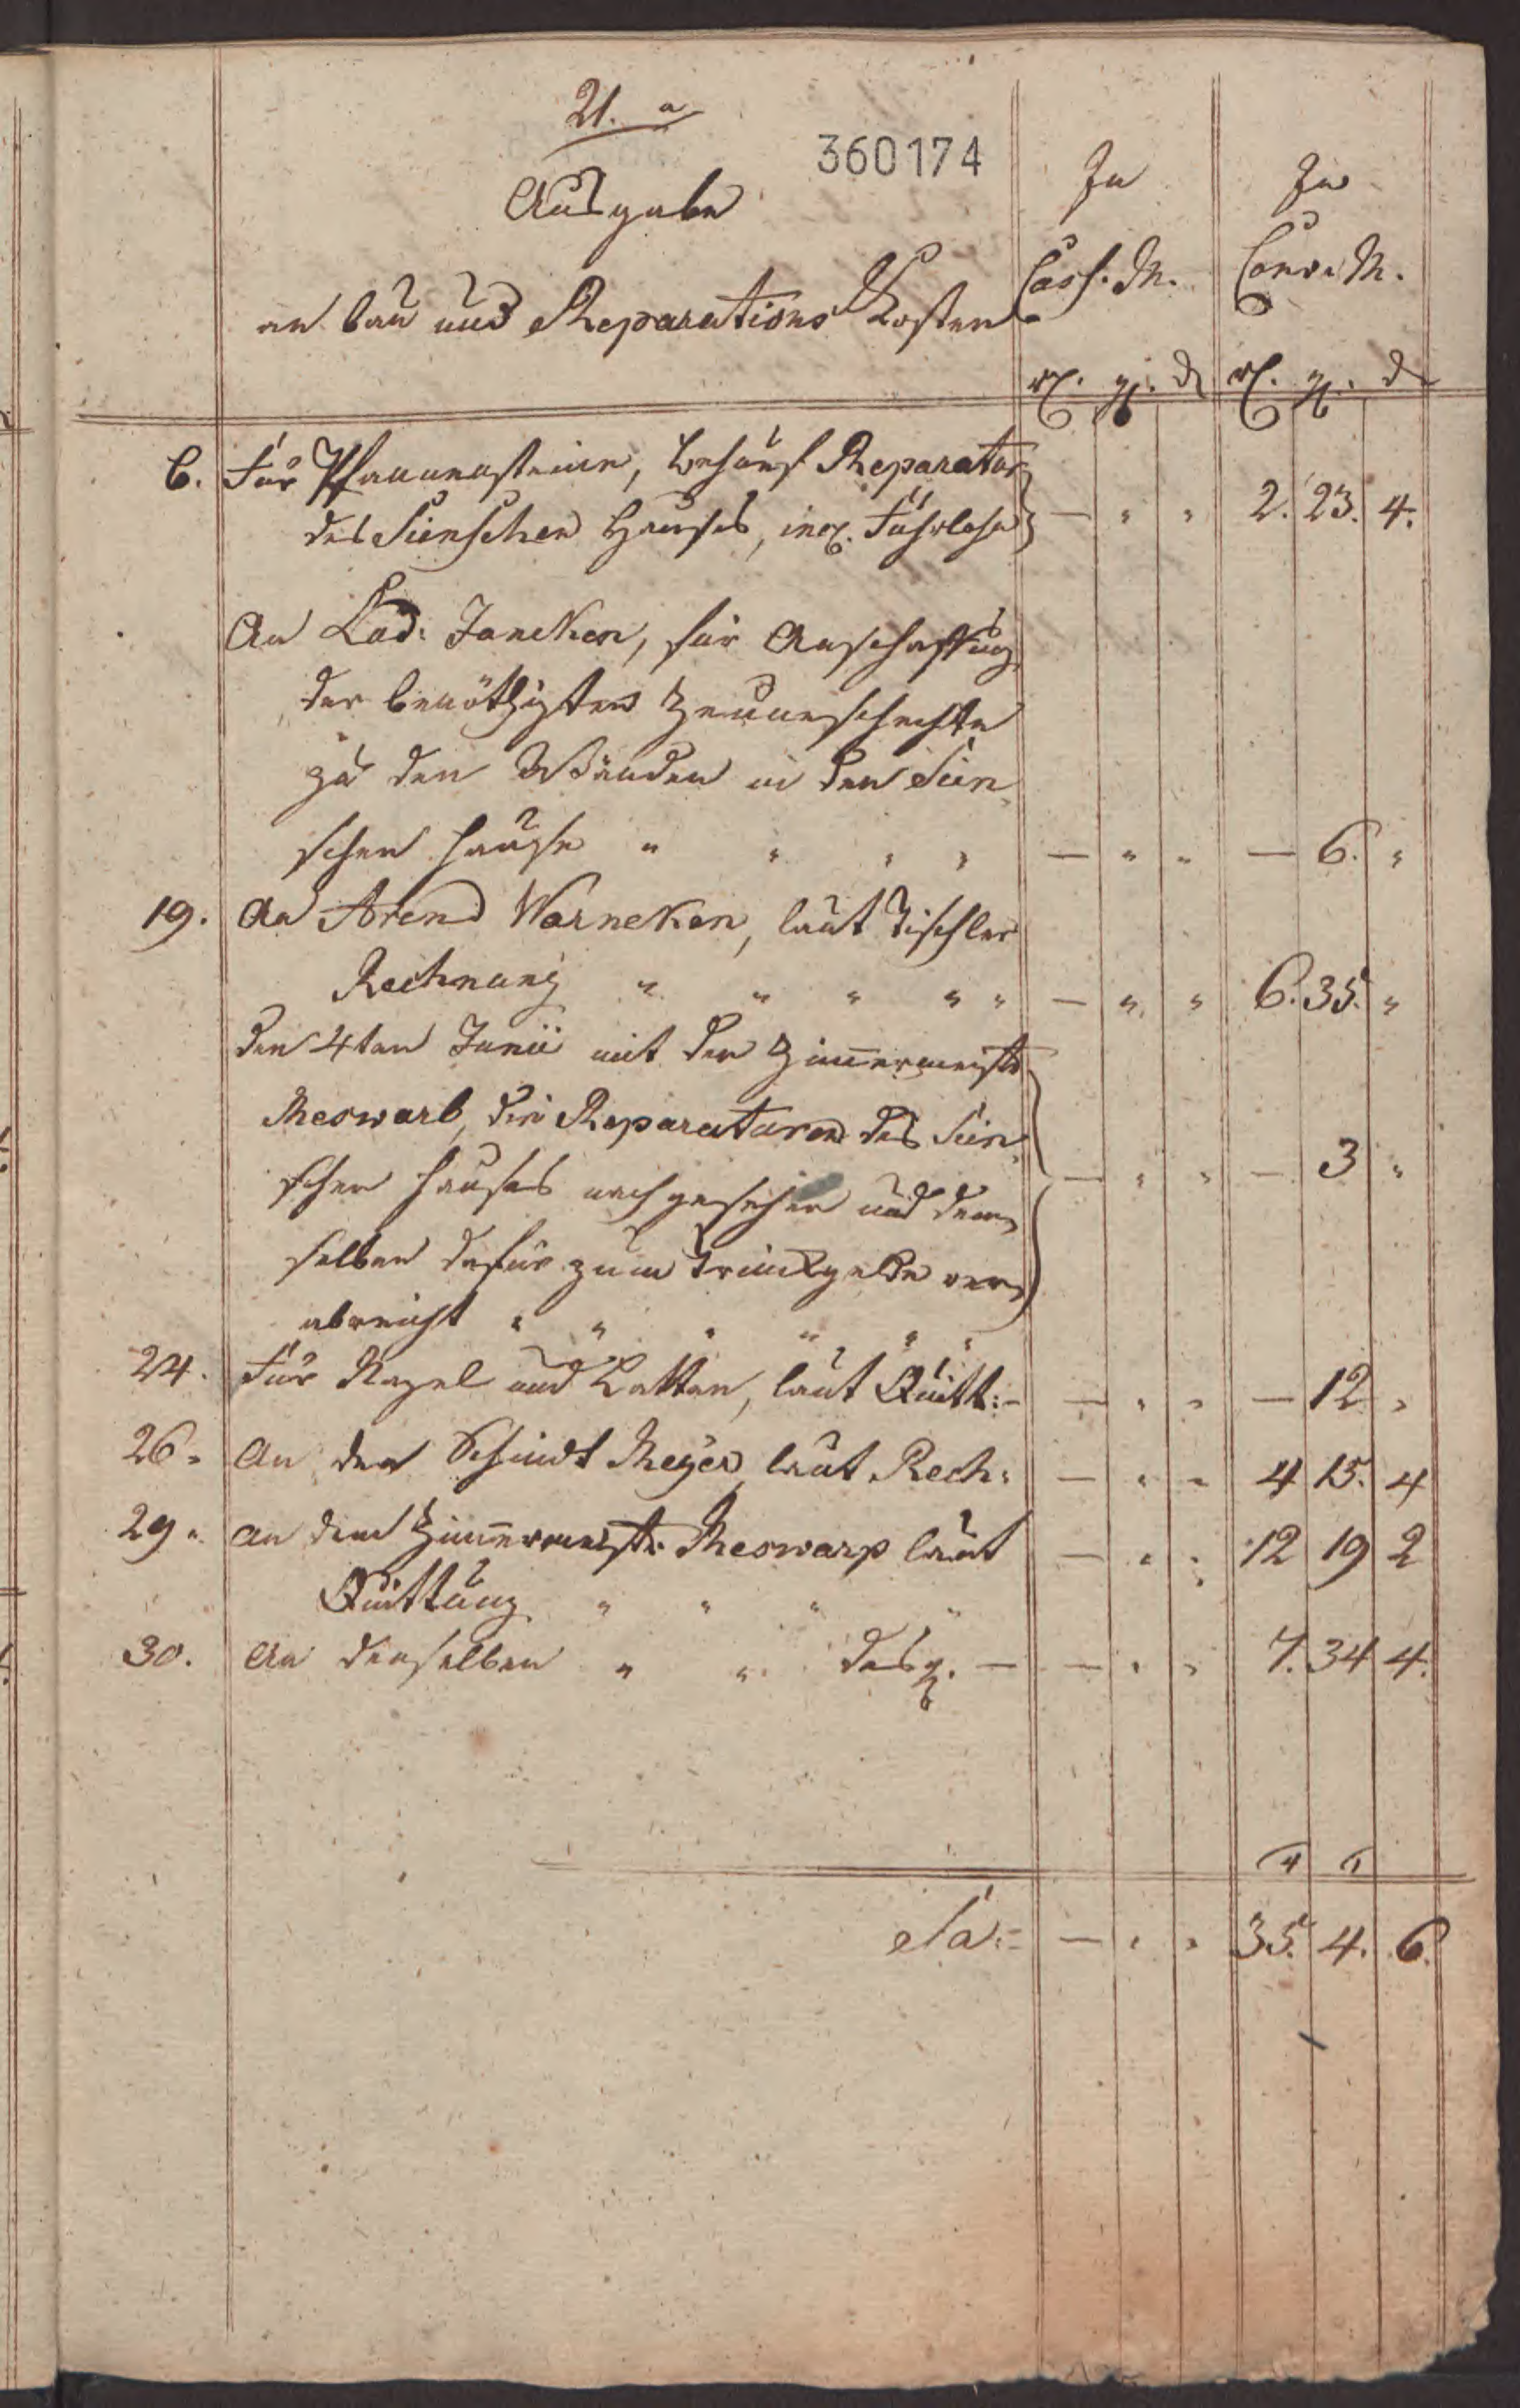 21. a
360174
Ausgabe
an bau und Reparations Kosten
In Cass. M.
In Conv. M.
rl. gl. d
rl. gl. d
6. Für Pfannensteine, behuef Reparatur
des Sünschen Hauses, incl. Fuhrlohn — " " 2. 23. 4.
An Lud: Janeken, für Anschaffung
der benöthigten Zaunschechte
zu den Wänden in den Sün
schen Hause " " " " — " " — 6. "
19. An Arend Warneken, laut Tischler
Rechnung " " " " " — " " 6. 35. "
den 4ten Junii mit den Zimermeistr
Meswarb, die Reparaturen des Sün
schen Hauses nachgesehen und dem
selben dafür zum Trinkgelde ver — " " — 3 "
abreicht " " " " " "
24. Für Nagel und Latten, laut Quitt: — — " " — 12 "
26. An den Schmidt Meyer, laut Rech: — " " 4 15. 4
29. An den Zimermeistr Meswarp laut — " " 12 19 2
Quittung " " " "
30. An denselben " " desgl. — — " " 7. 34 4.
4 1
Sa: — " " 35. 4. 6.